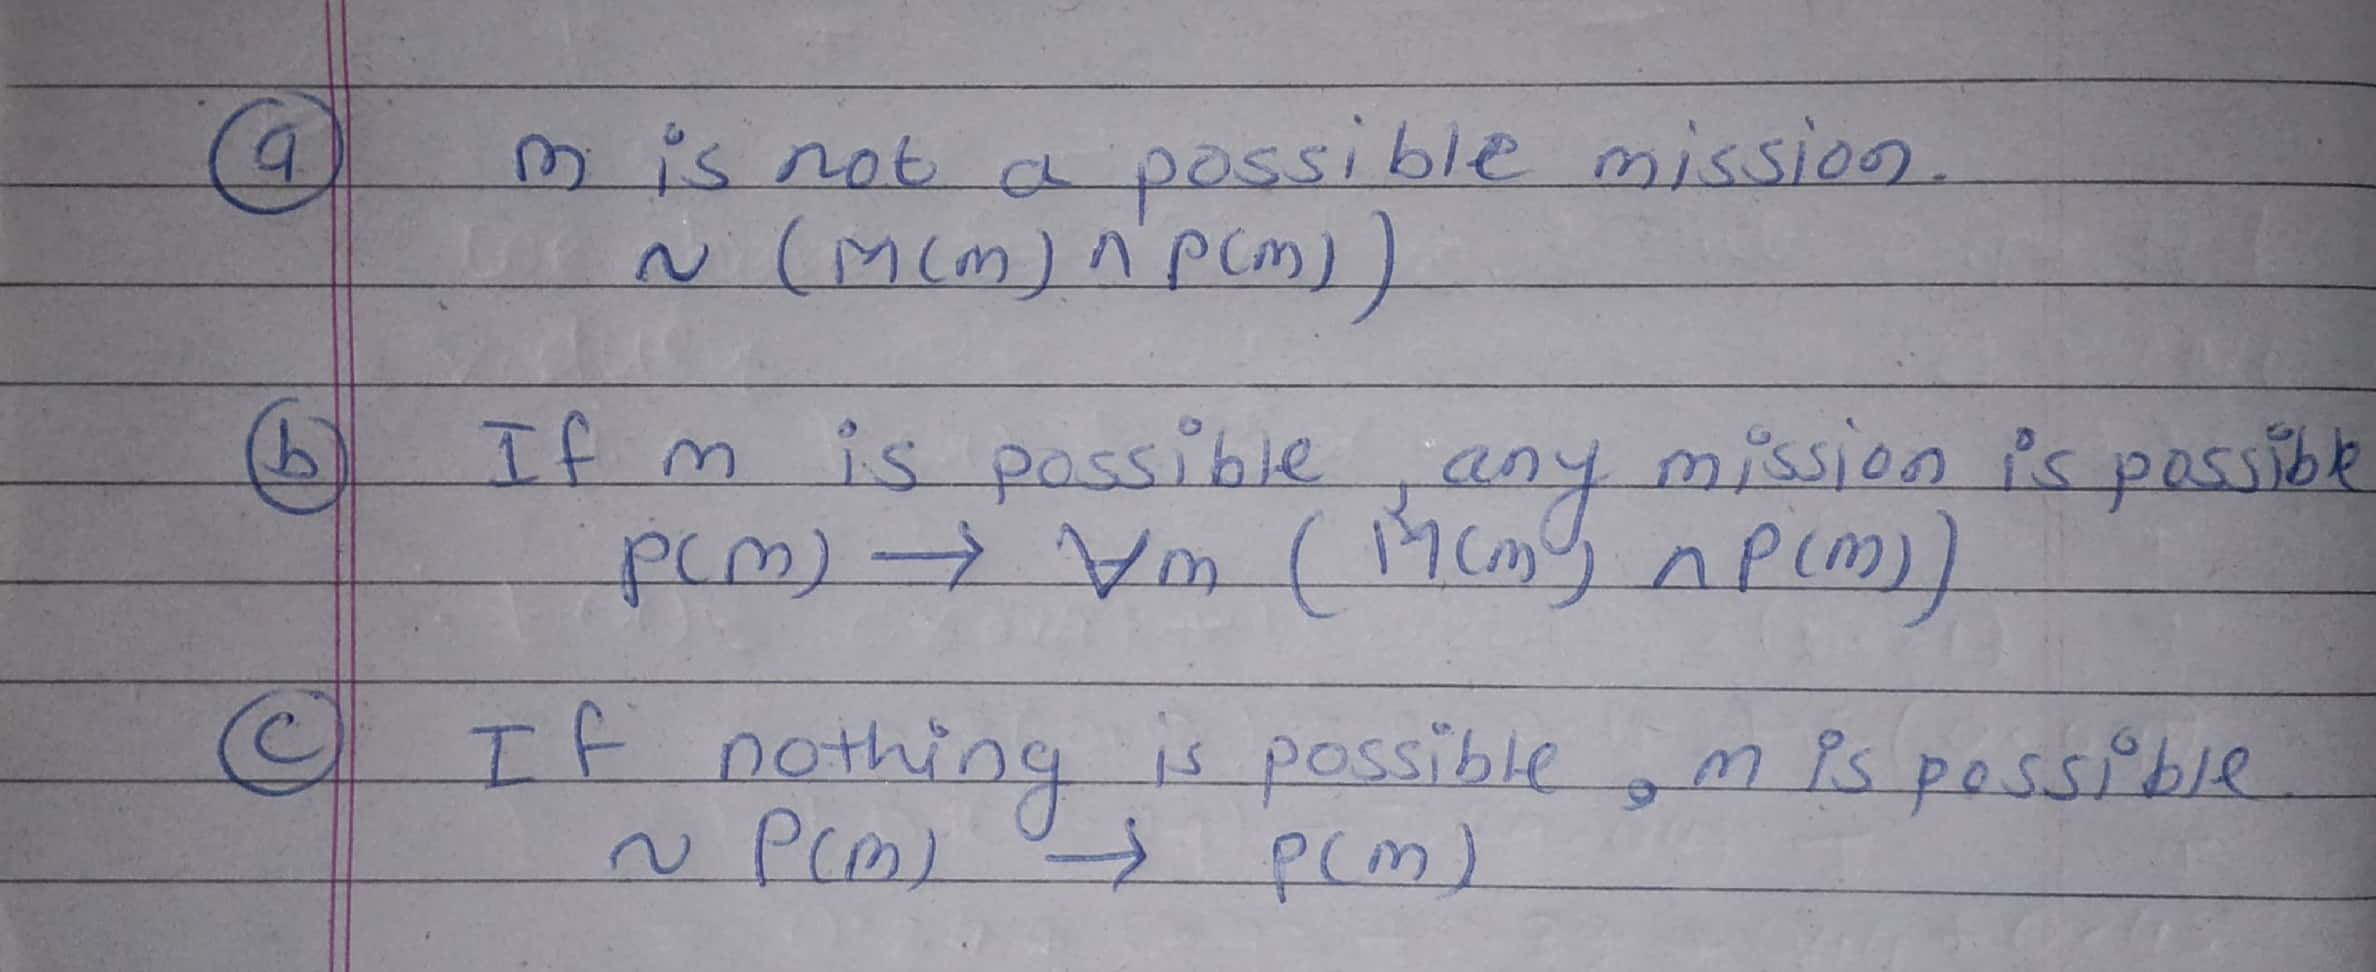 (a) m is not a possible mission.
~ (M(m) ∧ P(m))
(b) If m is possible, any mission is possible
P(m) → ∀m (M(m) ∧ P(m))
(c) If nothing is possible, m is possible.
~ P(m) → P(m)